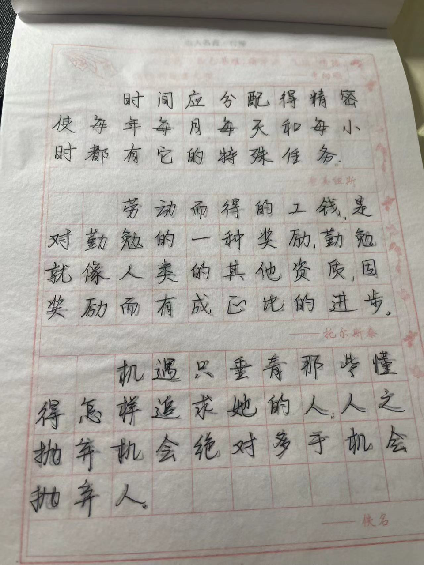 时间应分配得精密
使每年每月每天和每小
时都有它的特殊任务.
劳动而得的工钱,是
对勤勉的一种奖励,勤勉
就像人类的其他资质,因
奖励而有成正比的进步。
——托尔斯泰
机遇只垂青那些懂
得怎样追求她的人,人之
抛弃机会绝对多于机会
抛弃人。
——佚名